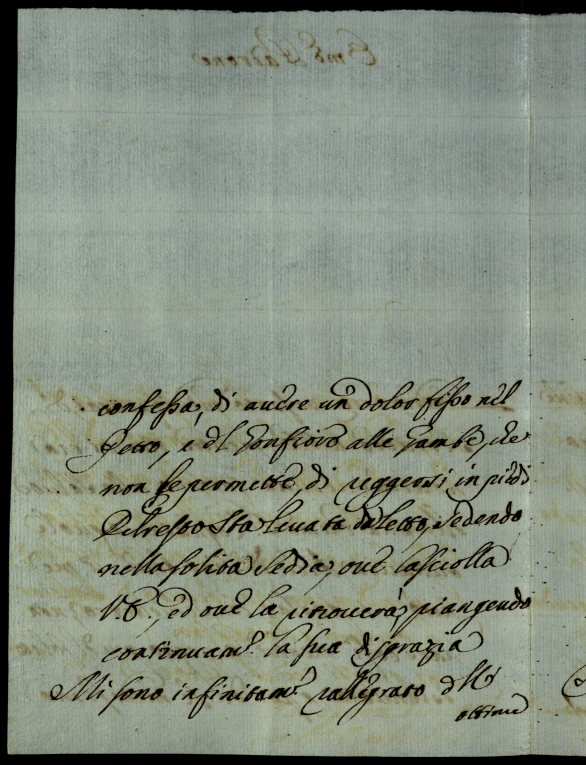 confessa, di avere un dolor fisso nel
petto, e del gonfiore alle gambe, che
non le permette, di reggersi in piedi
Del resto sta levata di letto, sedendo
nella solita sedia, ove lasciolla
V.E., ed ove la ritroverà, piangendo
continuam.te la sua disgrazia
Mi sono infinitam.te rallegrato
ottime